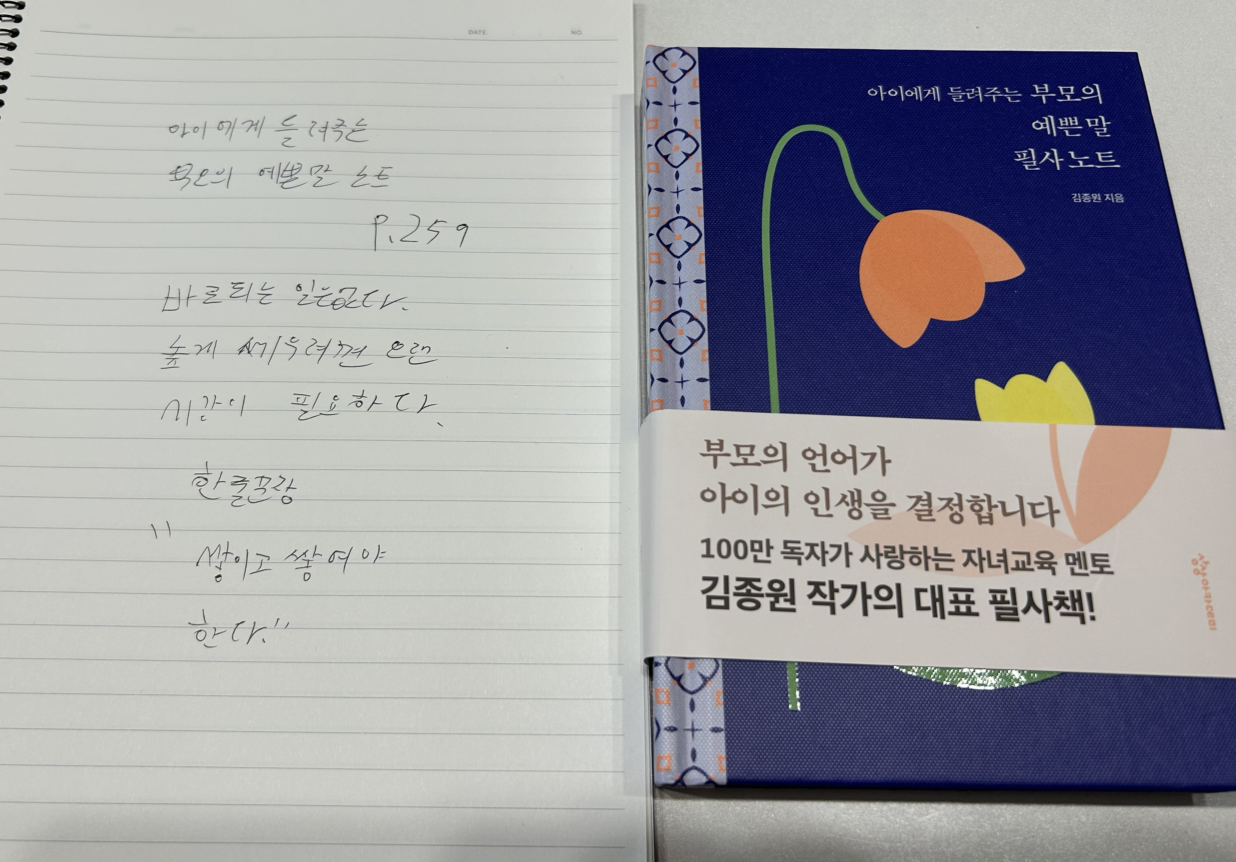 DATE. NO.
아이에게 들려주는
부모의 예쁜말 노트
P.259
바로되는 일은없다.
높게 세우려면 오랜
시간이 필요하다.
"
쌓이고 쌓여야
한다."
아이에게 들려주는 부모의
예쁜 말
필사 노트
김종원 지음
부모의 언어가
아이의 인생을 결정합니다
100만 독자가 사랑하는 자녀교육 멘토
김종원 작가의 대표 필사책!
상상아카데미